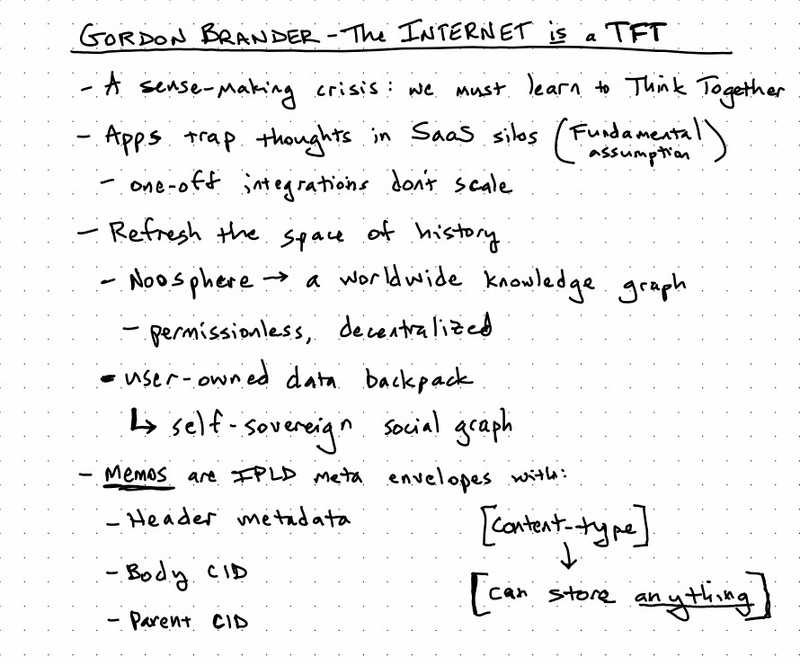 GORDON BRANDER - The INTERNET is a TFT
- A sense-making crisis: we must learn to Think Together
- Apps trap thoughts in SaaS silos (Fundamental
assumption)
- one-off integrations don't scale
- Refresh the space of history
- Noosphere → a worldwide knowledge graph
- permissionless, decentralized
- user-owned data backpack
↳ self-sovereign social graph
- Memos are IPLD meta envelopes with:
- Header metadata
[content-type]
↓
- Body CID
[can store anything]
- Parent CID